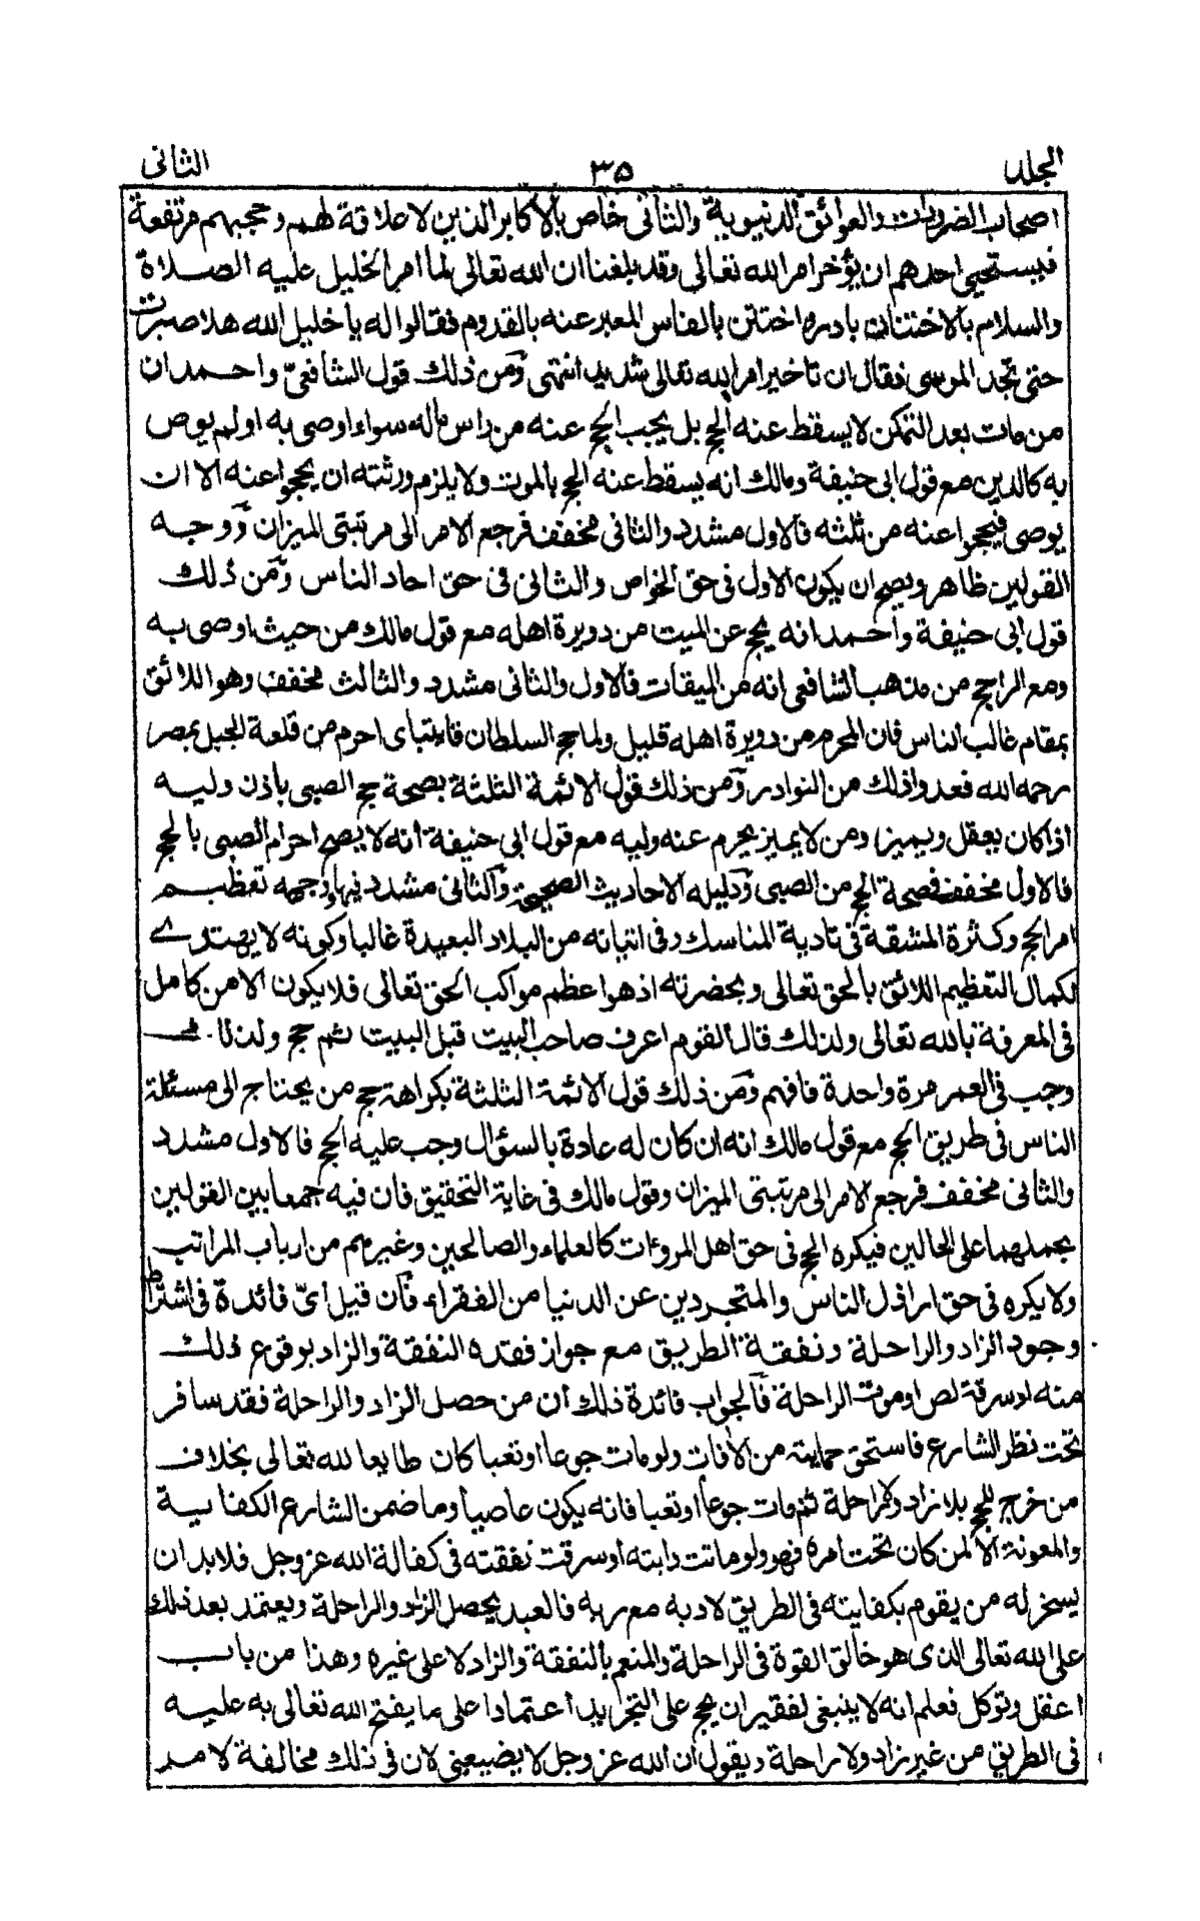 المجلد ٣٥ الثانى
اصحاب الضرورات والعوائق الدنيوية والثانى خاص بالاكابر الذين لا علاقة لهم وحجبهم مرتفعة
فيستحيى احدهم ان يؤخر امر الله تعالى وقد بلغنا ان الله تعالى لما امر الخليل عليه الصلاة
والسلام بالاختتان بادره اختتن بالفاس المعبر عنه بالقدوم فقالوا له يا خليل الله هلا صبرت
حتى تجد الموسى فقال ان تاخير امر الله تعالى شديد انتهى ومن ذلك قول الشافعى واحمد ان
من مات بعد التمكن لا يسقط عنه الحج بل يجب الحج عنه من راس ماله سواء اوصى به او لم يوص
به كالدين مع قول ابى حنيفة ومالك انه يسقط عنه الحج بالموت ولا يلزم ورثته ان يحجوا عنه الا ان
يوصى فيحجوا عنه من ثلثه فالاول مشدد والثانى مخفف فرجع الامر الى مرتبتى الميزان ووجه
القولين ظاهر ويصح ان يكون الاول فى حق الخواص والثانى فى حق احاد الناس ومن ذلك
قول ابى حنيفة واحمد انه يحج عن الميت من دويرة اهله مع قول مالك من حيث اوصى به
ومع الراجح من مذهب الشافعى انه من الميقات فالاول والثانى مشدد والثالث مخفف وهو اللائق
بمقام غالب الناس فان المحرم من دويرة اهله قليل ولما حج السلطان قايتباى احرم من قلعة الجبل بمصر
رحمه الله فعدوا ذلك من النوادر ومن ذلك قول الائمة الثلثة بصحة حج الصبى باذن وليه
اذا كان يعقل ويميز ومن لا يميز يحرم عنه وليه مع قول ابى حنيفة انه لا يصح احرام الصبى بالحج
فالاول مخفف فصحة الحج من الصبى ودليله الاحاديث الصحيحة والثانى مشدد فيها ووجهه تعظيم
امر الحج وكثرة المشقة فى تادية المناسك وفى اتيانه من البلاد البعيدة غالبا وكونه لا يهتدى
لكمال التعظيم اللائق بالحق تعالى وبحضرته اذ هو اعظم مواكب الحق تعالى فلا يكون الا من كامل
فى المعرفة بالله تعالى ولذلك قال القوم اعرف صاحب البيت قبل البيت ثم حج ولذا
وجب فى العمر مرة واحدة فافهم ومن ذلك قول الائمة الثلثة بكراهة حج من يحتاج الى مسئلة
الناس فى طريق الحج مع قول مالك انه ان كان له عادة بالسؤال وجب عليه الحج فالاول مشدد
والثانى مخفف فرجع الامر الى مرتبتى الميزان وقول مالك فى غاية التحقيق فان فيه جمعا بين القولين
بحملهما على الحالين فيكره الحج فى حق اهل المروءات كالعلماء والصالحين وغيرهم من ارباب المراتب
ولا يكره فى حق اراذل الناس والمتجردين عن الدنيا من الفقراء فان قيل اىّ فائدة فى اشتراط
وجود الزاد والراحلة ونفقة الطريق مع جواز فقده النفقة والزاد بوقوع ذلك
منه او سرقة لص او موت الراحلة فالجواب فائدة ذلك ان من حصل الزاد والراحلة فقد سافر
تحت نظر الشارع فاستحق حمايته من الافات ولو مات جوعا او تعبا كان طايعا لله تعالى بخلاف
من خرج للحج بلا زاد ولا راحلة ثم مات جوعا او تعبا فانه يكون عاصيا وما ضمن الشارع الكفاية
والمعونة الا لمن كان تحت امره فهو ولو ماتت دابته او سرقت نفقته فى كفالة الله عز وجل فلا بد ان
يسخر له من يقوم بكفايته فى الطريق لادبه مع ربه فالعبد يحصل الزاد والراحلة ويعتمد بعد ذلك
على الله تعالى الذى هو خالق القوة فى الراحلة والمنعم بالنفقة والزاد لا على غيره وهذا من باب
اعقل وتوكل فعلم انه لا ينبغى لفقير ان يحج على التجريد اعتمادا على ما يفتح الله تعالى به عليه
فى الطريق من غير زاد ولا راحلة ويقول ان الله عز وجل لا يضيعنى لان فى ذلك مخالفة لامر